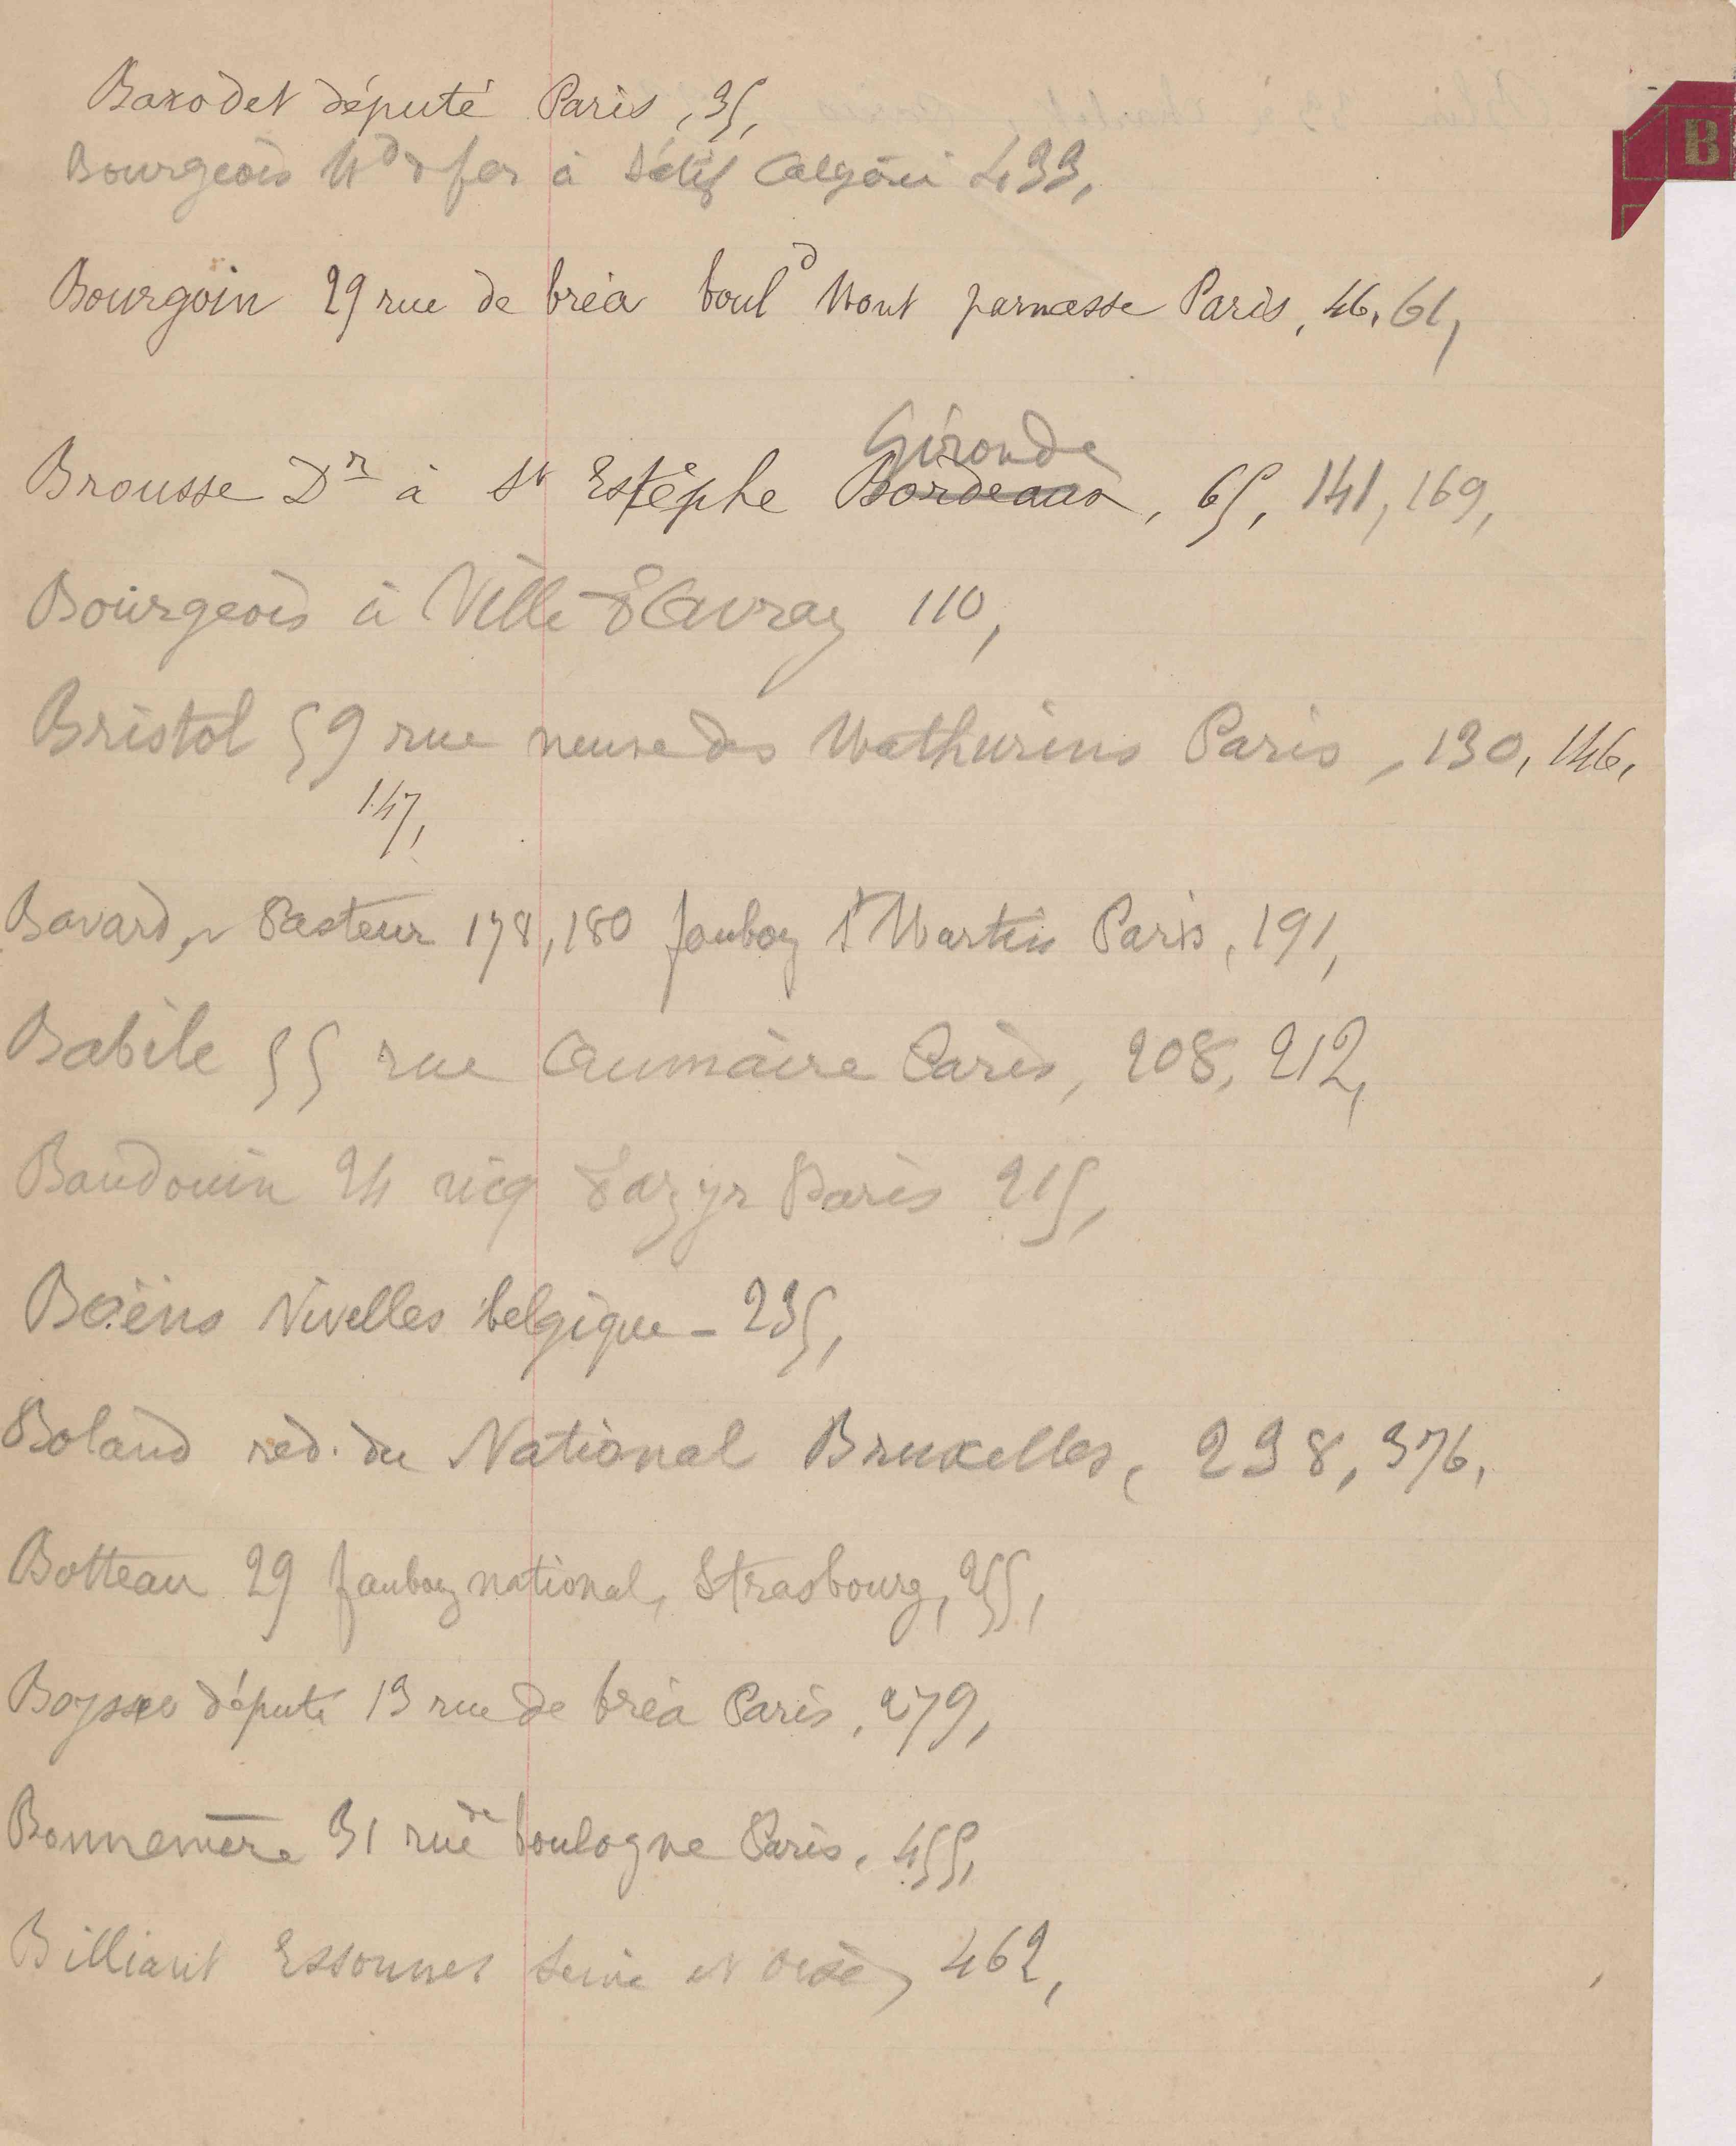 B
Barodet député Paris, 35,
Bourgeois Md de fer à Sétif Algérie 433,
Bourgoin 29 rue de bréa bould Mont parnasse Paris, 46, 61,
Gironde
Brousse Dr à St Estèphe Bordeaux, 65, 141, 169,
Bourgeois à Ville d'Avray 110,
Bristol 59 rue neuve des Mathurins Paris, 130, 146,
147,
Bavard, Pasteur 178, 180 faubog St Martin Paris, 191,
Babile 55 rue Aumaire Paris, 208, 212,
Baudouin 24 Paris 215,
Baëns Nivelles belgique - 235,
Boland réd. du National Bruxelles, 238, 376,
Botteau 29 faubog national, Strasbourg, 255,
Boysset député 13 rue de bréa Paris, 279,
Bonnemère 31 rue de boulogne Paris, 455,
Billiant Essonnes Seine et Oise, 462,